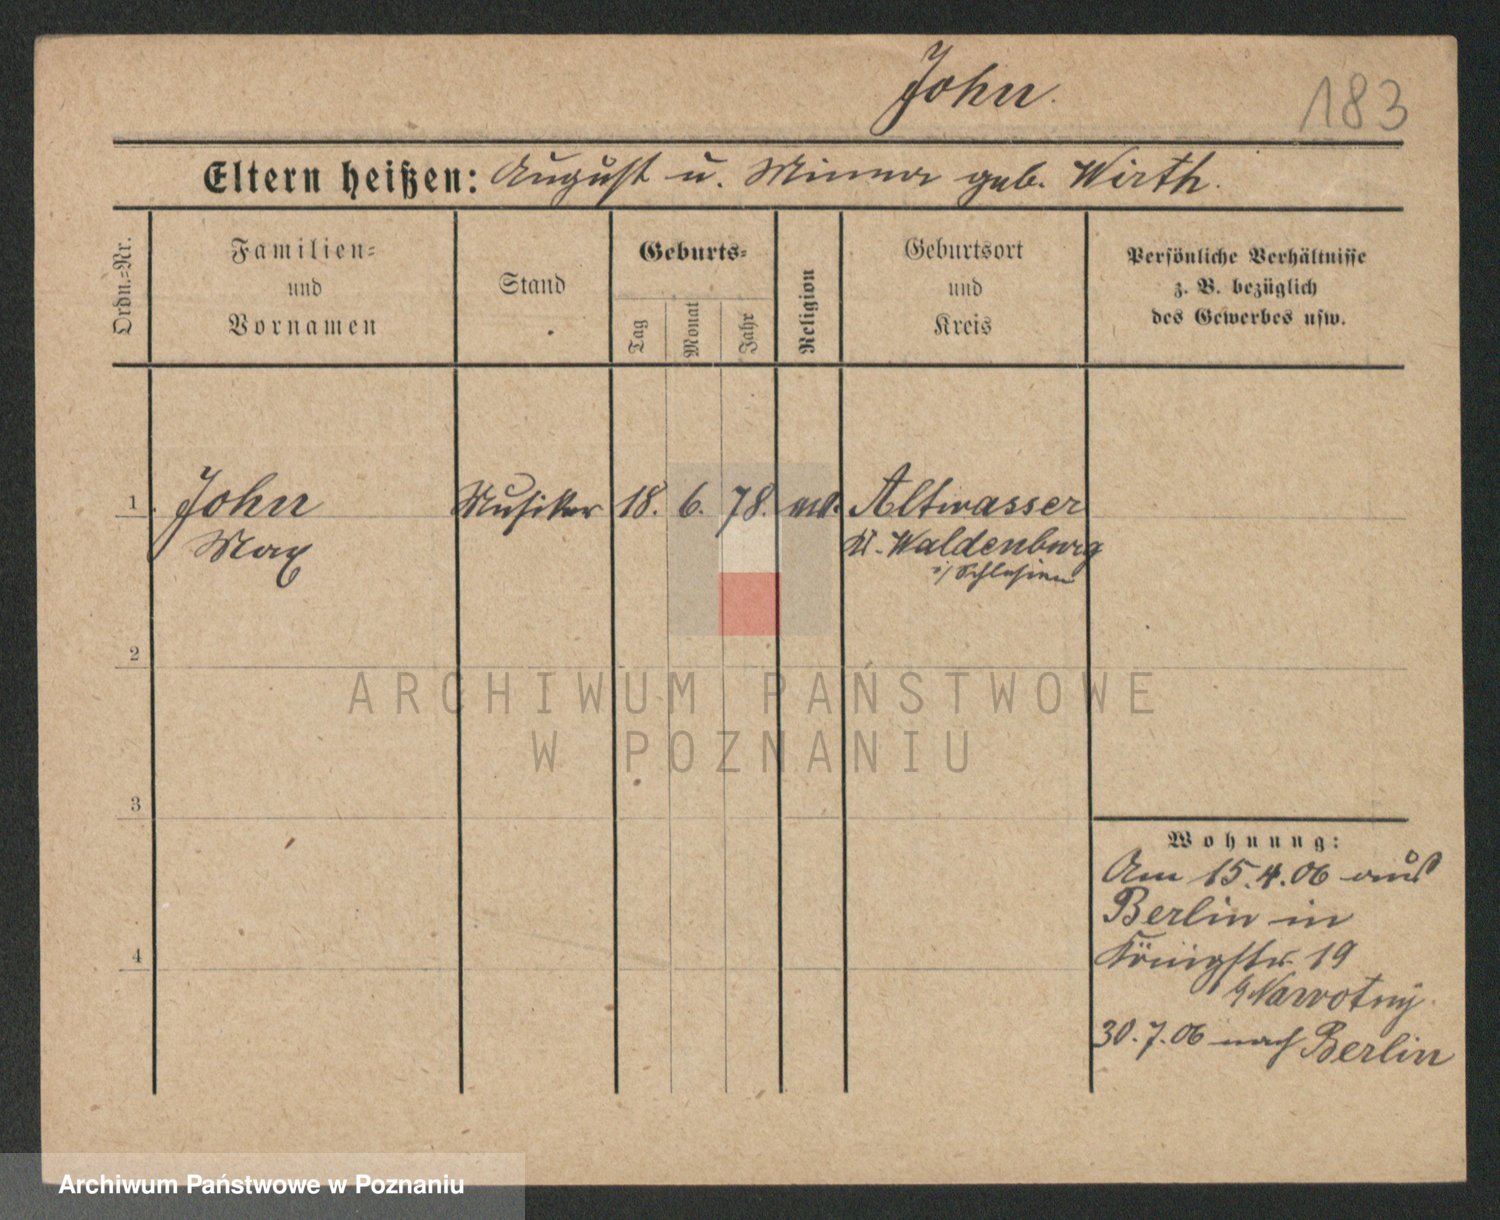 John.
183
Eltern heißen: August u. Minna geb. Wirth.
Ordn.-Nr.
Familien-
und
Vornamen
Stand
Geburts-
Tag
Monat
Jahr
Religion
Geburtsort
und
Kreis
Persönliche Verhältnisse
z. B. bezüglich
des Gewerbes usw.
1 John Musiker 18. 6. 78. Altwasser
Max Waldenburg
i/ Schlesien
2
ARCHIWUM PAŃSTWOWE
W POZNANIU
3
Wohnung:
Am 15.4.06 aus
Berlin in
Königstr. 19
Nawotny.
4
30.7.06 nach Berlin
Archiwum Państwowe w Poznaniu